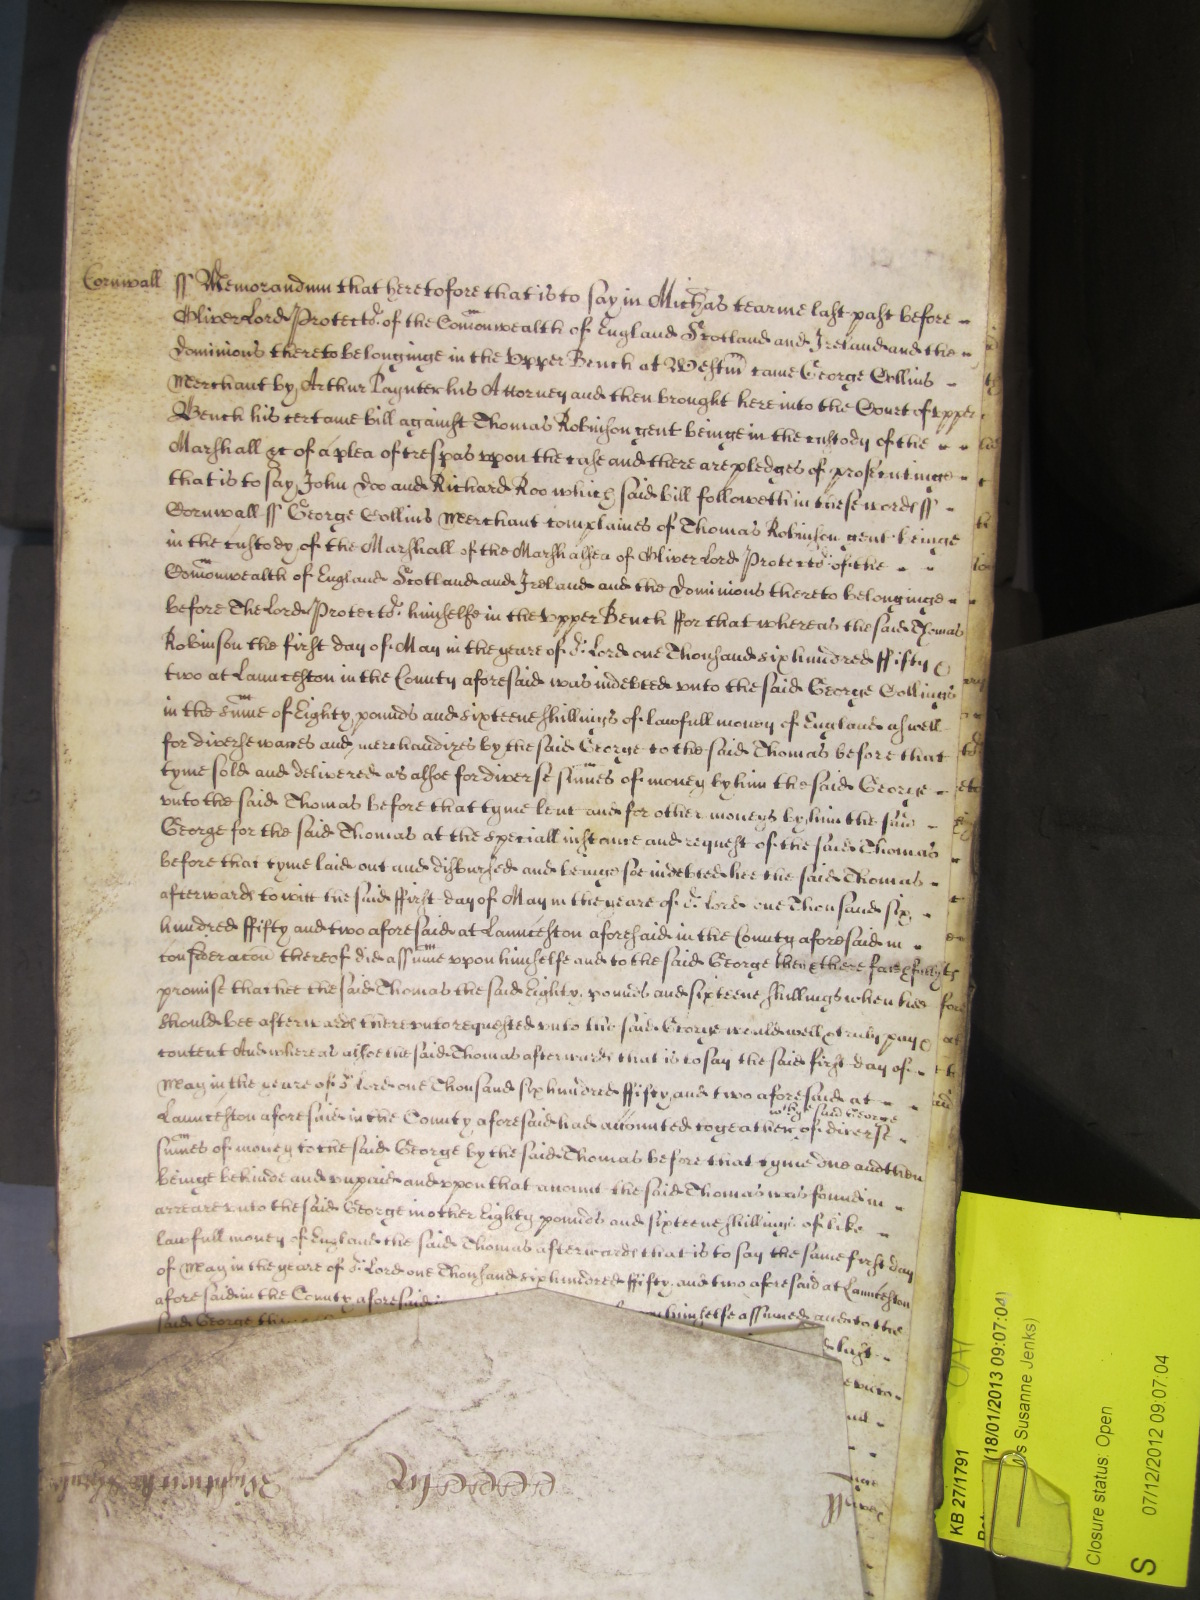 Cornwall ss Memorandum that heretofore that is to say in Michas tearme last past before
Oliver Lord Protector of the Comonwealth of England Scotland and Ireland and the
Dominions thereto belonginge in the Vpper Bench at Westm came George Collins
Merchant by Arthur Paynter his Attorney and then brought here into the Court of vpper
Bench his certaine bill against Thomas Robinson gent beinge in the custody of the
Marshall &c of a plea of trespas vpon the case and there are pledges of prosecutinge
that is to say John Doo and Richard Roo which said bill followeth in these words ss
Cornwall ss George Collins Merchant complaines of Thomas Robinson gent beinge
in the custody of the Marshall of the Marshalsea of Oliver Lord Protector of the
Comonwealth of England Scotland and Ireland and the Dominions thereto belonginge
before The Lord Protector himselfe in the vpper Bench ffor that whereas the said Thomas
Robinson the first day of May in the yeare of or Lord one Thousand six hundred ffifty
two at Launceston in the County aforesaid was indebted vnto the said George Collings
in the sume of Eighty pounds and sixteene shillings of lawfull money of England aswell
for diverse wares and merchandizes by the said George to the said Thomas before that
tyme sold and delivered as alsoe for diverse sumes of money by him the said George
vnto the said Thomas before that tyme lent and for other moneys by him the said
George for the said Thomas at the speciall instance and request of the said Thomas
before that tyme laid out and disbursed and beinge soe indebted hee the said Thomas
afterwards to witt the said ffirst day of May in the yeare of or Lord one Thousand six
hundred ffifty and two aforesaid at Launceston aforesaid in the County aforesaid in
consideracon thereof did assume vpon himselfe and to the said George then & there faithfully
promise that hee the said Thomas the said Eighty pounds and sixteene shillings when hee
should bee afterwards therevnto requested vnto the said George would well & truly pay &
content And whereas alsoe the said Thomas afterwards that is to say the said first day of
May in the yeare of or Lord one Thousand six hundred ffifty and two aforesaid at
wth ye said George
Launceston aforesaid in the County aforesaid had accounted togeather of diverse
sumes of money to the said George by the said Thomas before that tyme due and then
beinge behinde and vnpaid and vpon that account the said Thomas was found in
arreare vnto the said George in other Eighty pounds and sixteene shillings of like
lawfull money of England the said Thomas afterwards that is to say the same first day
of May in the yeare of or Lord one Thousand six hundred ffifty and two aforesaid at Launceston
aforesaid in the County aforesaid
said George himselfe assumed and to the
KB 27/1791
(18/01/2013 09:07:04)
Susanne Jenks)
Closure status: Open
S 07/12/2012 09:07:04